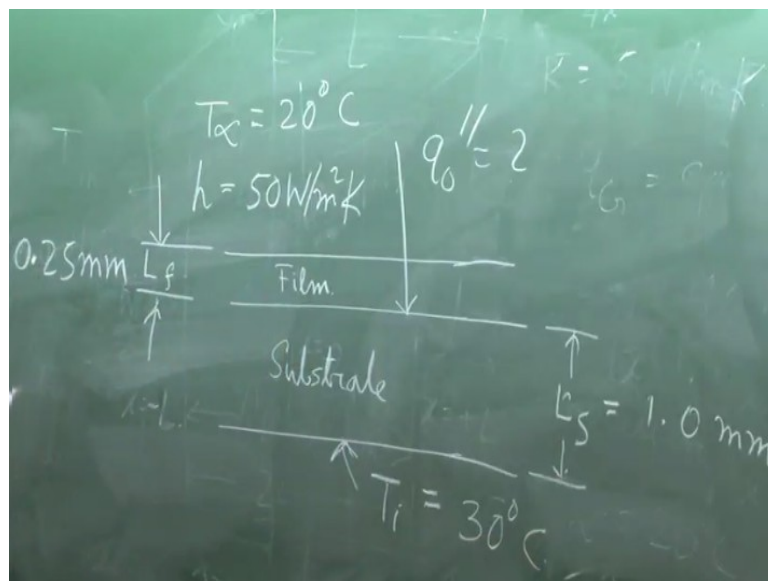 L
T∝ = 20°C
h = 50W/m²K
q₀″ = 2
0.25mm
L_f
Film
Substrate
L_S = 1.0 mm
T_i = 30°C